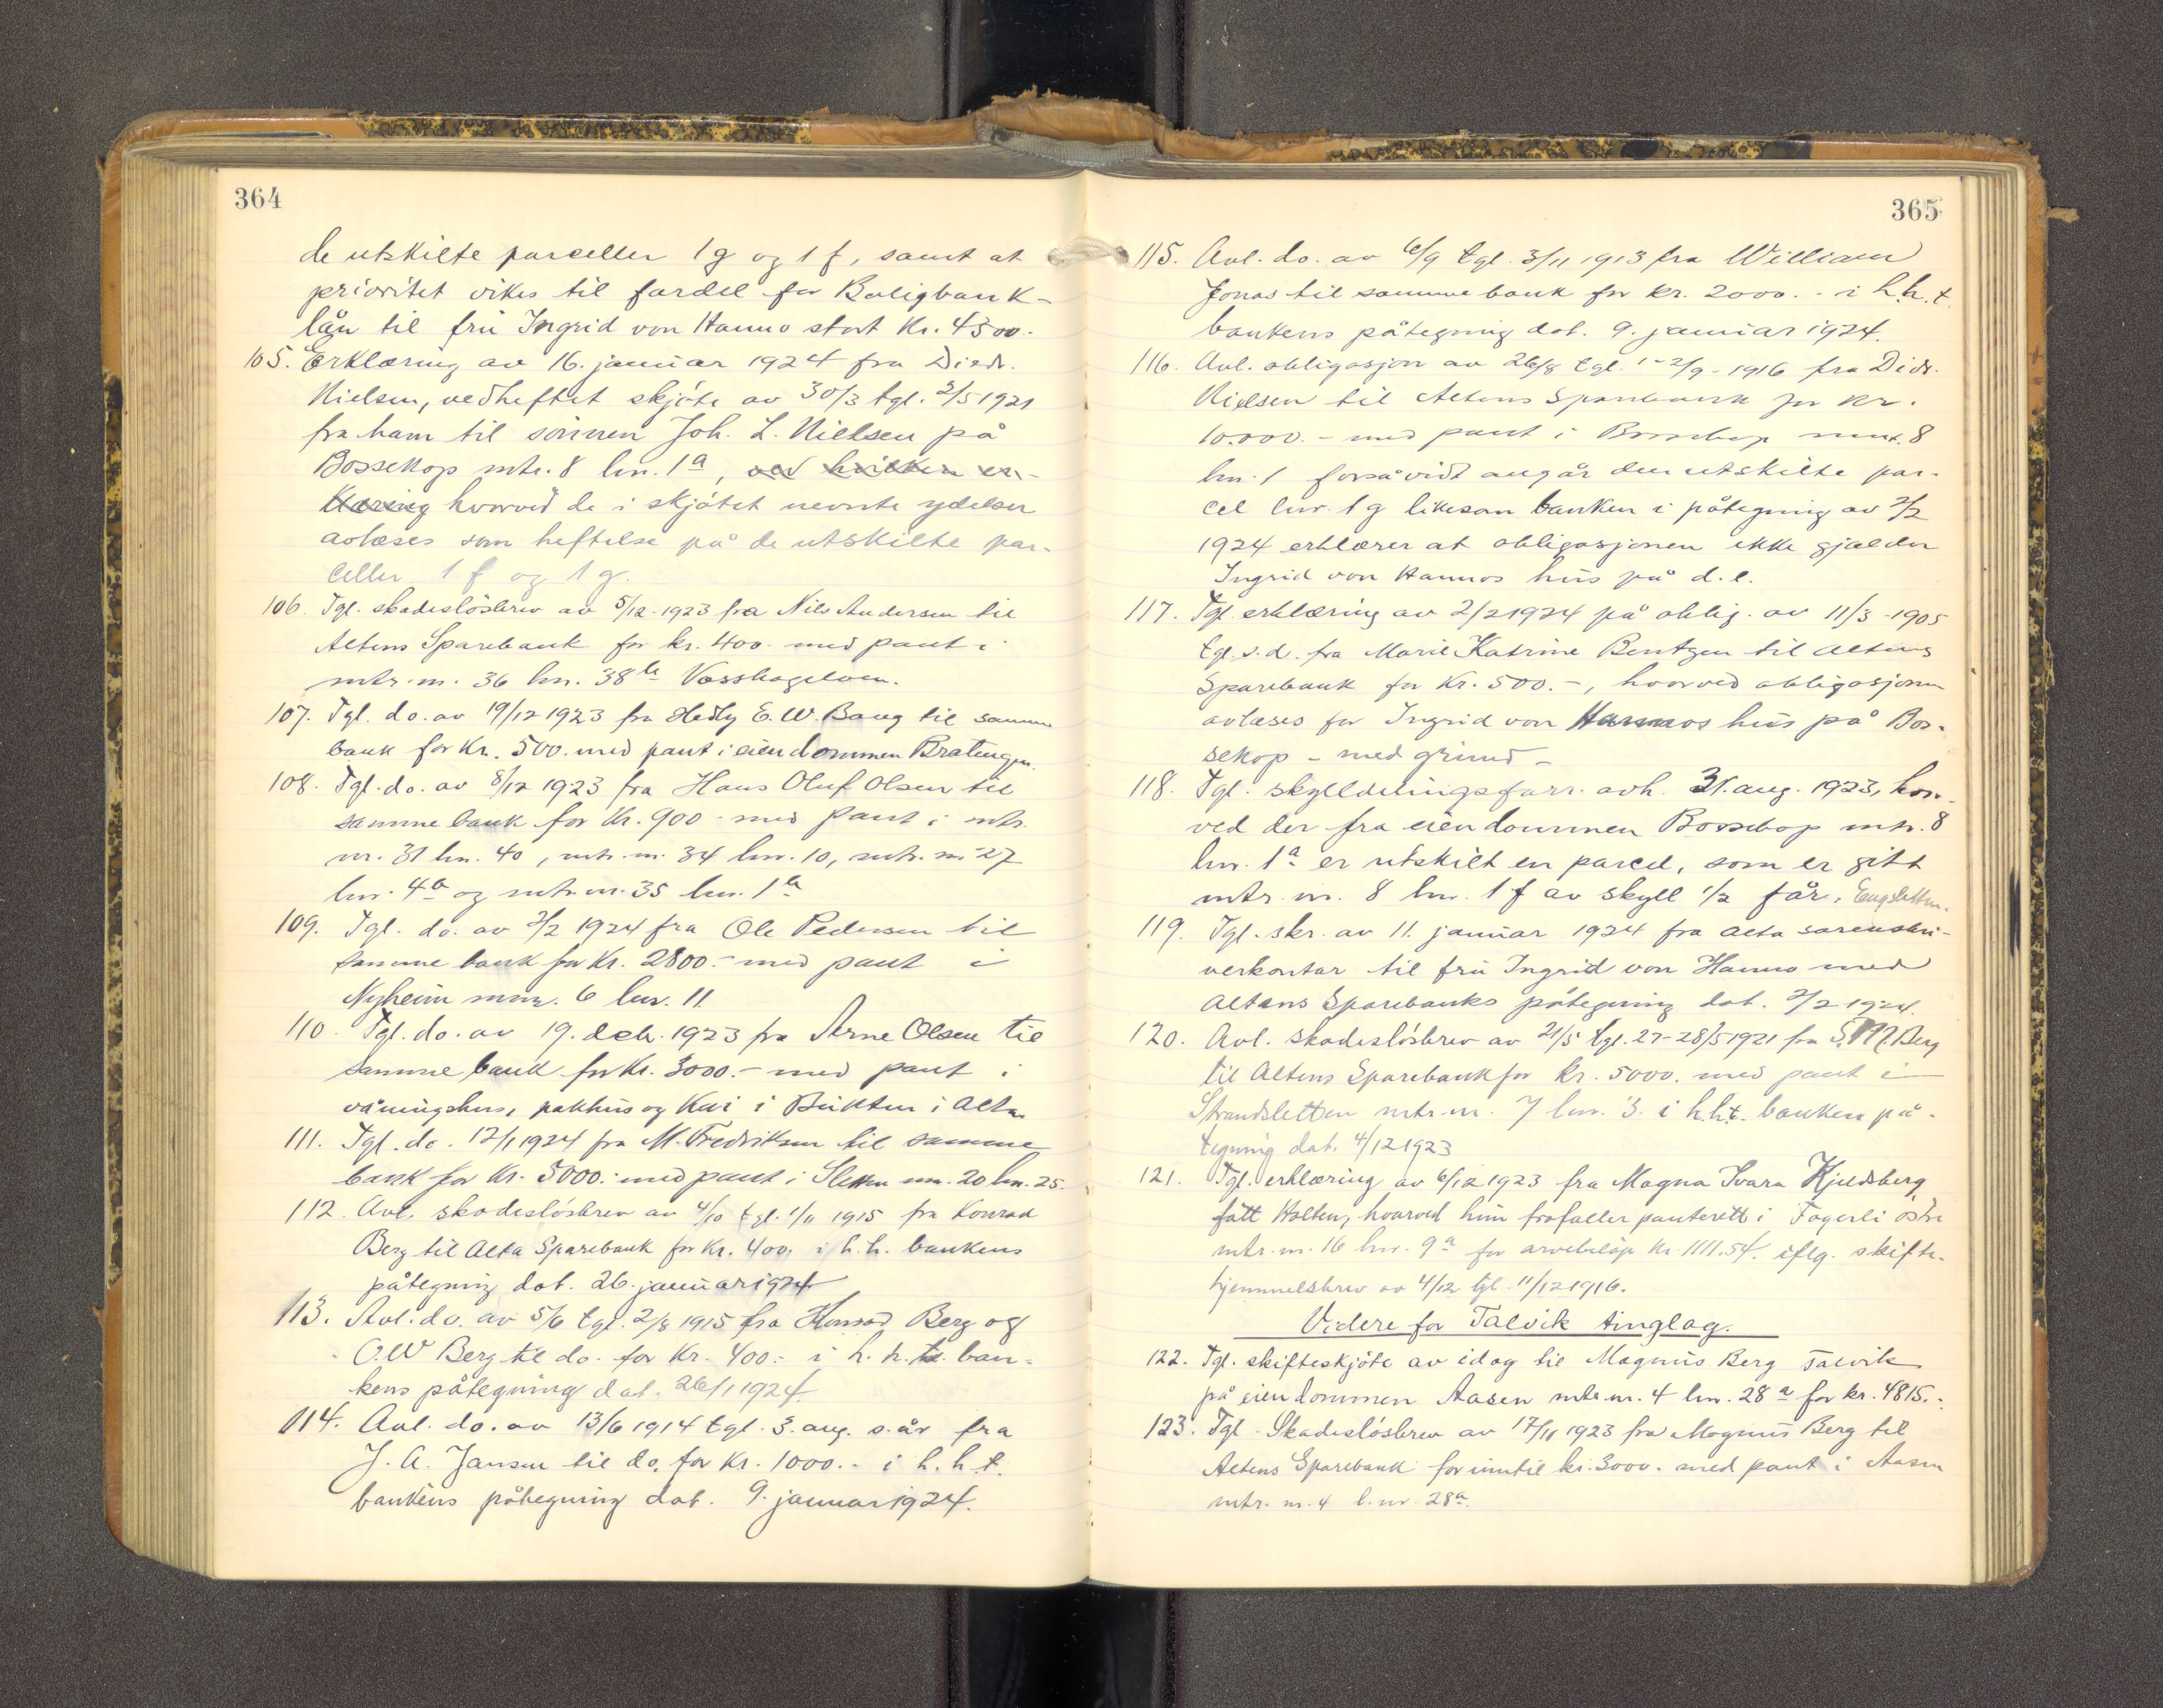 364
de utskilte parceller 1g og 1f, samt at
prioritet vikes til fordel for Boligbank-
lån til frü Ingrid von Hanno stort kr. 4500.
105. Erklæring av 16. januar 1924 fra Diedr.
Nielsen, vedheftet skjøte av 30/3 tgl. 2/5 1921
fra ham til sønnen Joh. L. Nielsen på
Bossekop mtr. 8 lnr. 1a, ved hvilken er-
klæring hvorved de i skjøtet nevnte ydelser
avlæses som heftelse på de utskilte par-
celler 1f og 1g.
106. Tgl. skadesløsbrev av 5/12-1923 fra Nils Andersen til
Altens Sparebank for kr. 400 med pant i
mtr. nr. 36 lnr. 38 Vasshagelven.
107. Tgl. do. av 19/12 1923 fra Hedly E. W. Bang til samme
bank for kr. 500. med pant i eiendommen Bratengen.
108. Tgl. do. av 8/12 1923 fra Hans Oluf Olsen til
samme bank for kr. 900 - med pant i mtr.
nr. 31 lnr. 40, mtr. nr. 34 lnr. 10, mtr. nr. 27
lnr. 4a og mtr. nr. 35 lnr. 1a
109. Tgl. do. av 2/2 1924 fra Ole Pedersen til
samme bank for kr. 2800.- med pant i
Nyheim mnr. 6 lnr. 11
110. Tgl. do. av 19. deb. 1923 fra Arne Olsen til
samme bank for kr. 3000.- med pant i
våningshus, pakhus og kai i Bukten i Alta
111. Tgl. do. 12/1 1924 fra M. Fredriksen til samme
bank for kr. 5000.- med pant i Sletten mnr. 20 lnr. 25.
112. Avl. skadesløsbrev av 4/10 tgl. 1/11 1915 fra Konrad
Berg til Alta Sparebank for kr. 400. i h.h. bankens
påtegning dat. 26. januar 1924
113. Avl. do. av 5/6 tgl. 2/8 1915 fra Konrad Berg og
O.W Berg til do. for kr. 400.- i h. h. t. ban-
kens påtegning dat. 26/1 1924.
114. Avl. do. av 13/6 1914 tgl. 3. aug. s. år fra
J. A. Jansen til do. for kr. 1000.- i h. h. t.
bankens påtegning dat. 9. januar 1924.
365
115. Avl. do. av 6/9 tgl. 3/11 1913 fra William
Jonas til samme bank for kr. 2000.- i h.h.t.
bankens påtegning dat. 9. januar 1924.
116. Avl. obligasjon av 26/8 tgl. 1-2/9-1916 fra Didr.
Nielsen til Altens Sparebank for kr.
10.000.- med pant i Bossekop mnr. 8
lnr. 1 forsåvidt angår den utskilte par-
cel lnr. 1g likesom banken i påtegning av 2/2
1924 erklærer at obligasjonen ikke gjælder
Ingrid von Hannos hüs på d. e.
117. Tgl. erklæring av 2/2 1924 på oblig. av 11/3-1905
tgl. s.d. fra Marie Katrine Bentzen til Altens
Sparebank for kr. 500.-, hvorved obligasjonen
avlæses for Ingrid von Hannos hüs på Bos-
sekop - med gründ -
118. Tgl. skylddelingsforr. avh. 31. aug. 1923, hvor-
ved der fra eiendommen Bossekop mtr. 8
lnr. 1a er utskilt en parcel, som er gitt
mtr. nr. 8 lnr. 1f av skyll 1/2 får, Engsletten.
119. Tgl. skr. av 11. januar 1924 fra Alta sorenskri-
verkontor til frü Ingrid von Hanno med
Altens Sparebanks påtegning dat. 2/2 1924.
120. Avl. skadesløsbrev av 21/5 tgl. 27-28/5 1921 fra Berg
til Altens Sparebank for kr. 5000. med pant i
Strandsletten mtr. nr. 7 lnr. 3. i h.h.t. banken på-
tegning dat. 4/12 1923
121. Tgl. erklæring av 6/12 1923 fra Magna Ivara Kjeldsberg
født Holten, hvorved hün frafaller panterett i Fagerli østre
mtr. nr. 16 lnr. 9a for arvebeløp kr. 1111.54. iflg. skifte-
hjemmelsbrev av 4/12 tgl. 11/12 1916.
Videre for Talvik tinglag.
122. Tgl. skifteskjøte av idag til Magnus Berg Talvik
på eiendommen Aasen mtr. nr. 4 lnr. 28a for kr. 4815.-
123. Tgl. Skadesløsbrev av 17/11 1923 fra Magnus Berg til
Altens Sparebank for inntil kr. 3000. med pant i Aasen
mtr. nr. 4 l. nr. 28a.